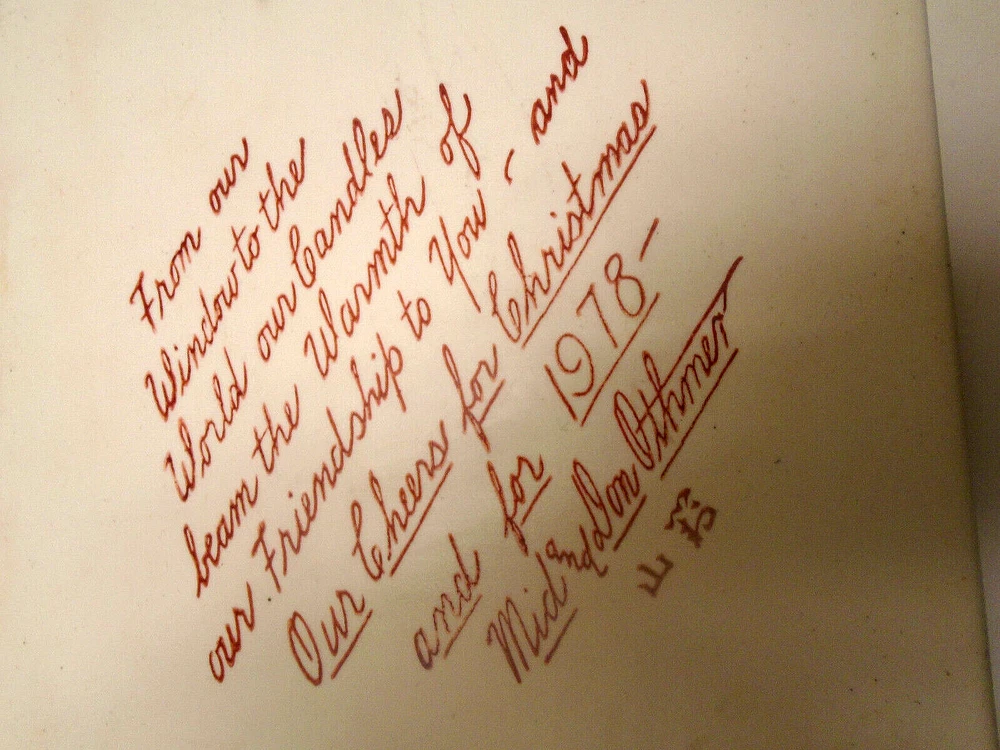 From our
Window to the
World our Candles
beam the Warmth of
our Friendship to You - and
Our Cheers for Christmas
and for 1978 -
Mid and Don Othmer